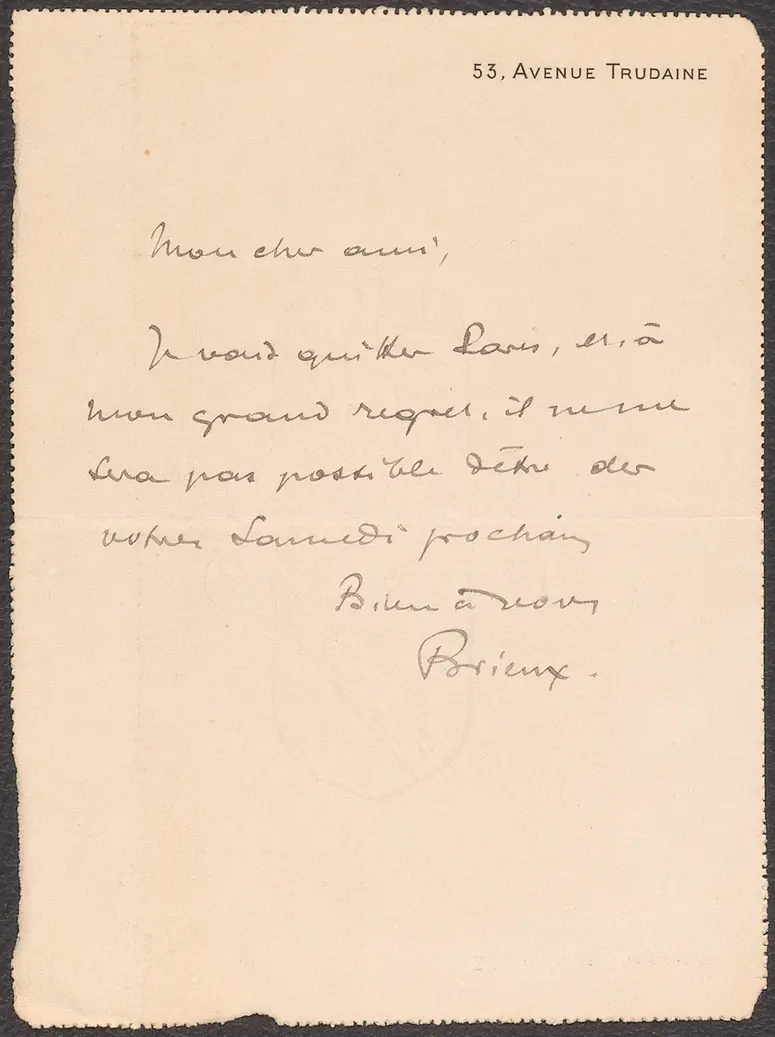 53, AVENUE TRUDAINE
Mon cher ami,
Je vais quitter Paris, et, à
mon grand regret, il ne me
sera pas possible d'être des
votres Samedi prochain
Bien à vous
Brieux.